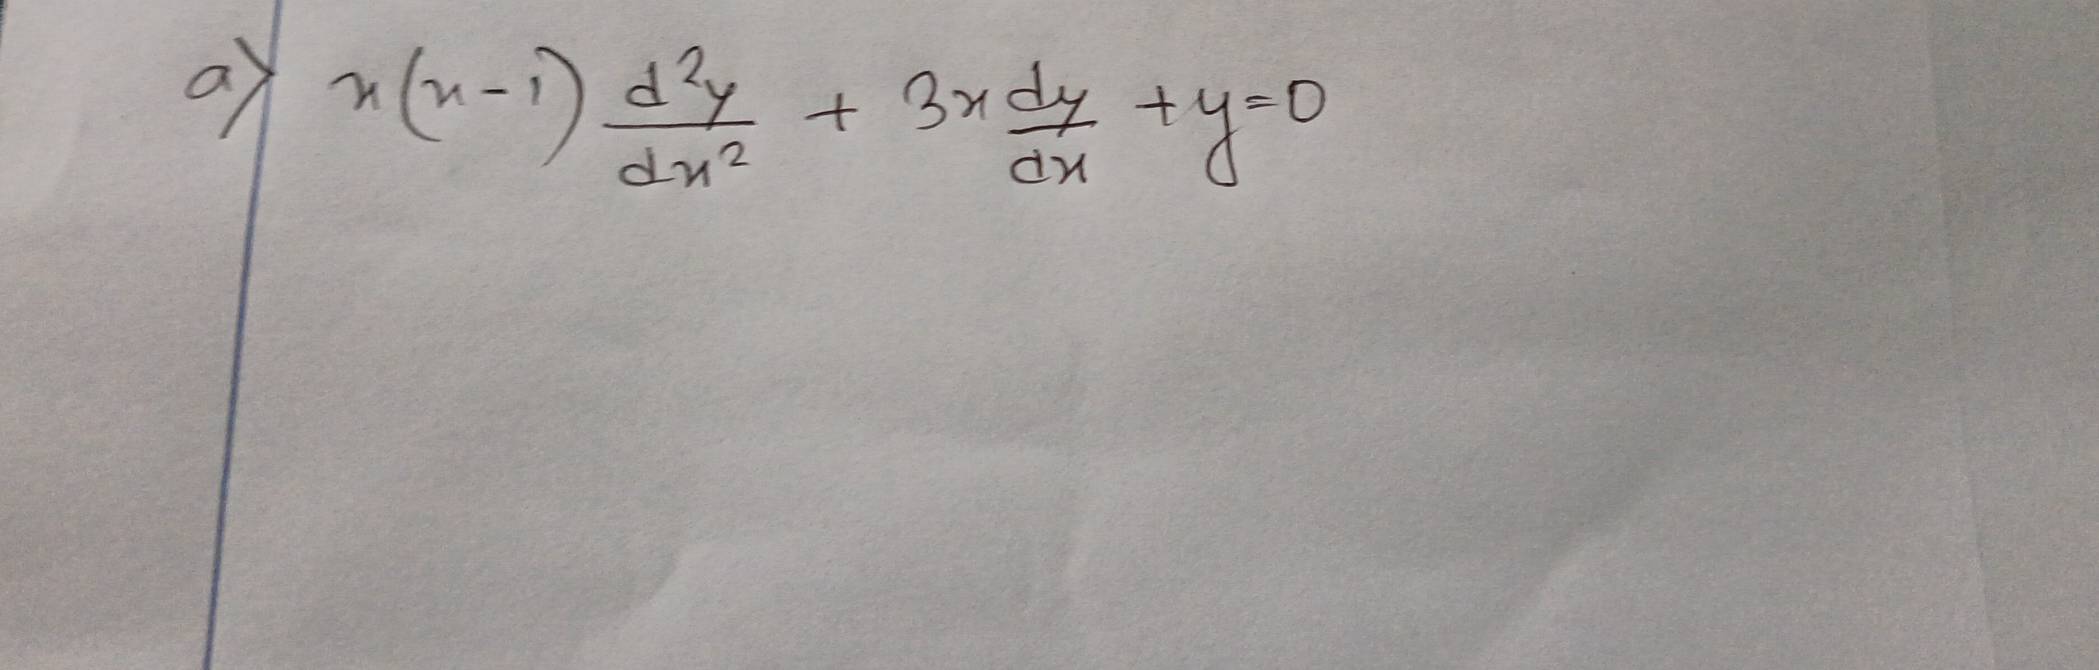 a) x(x-1) d²y/dx² + 3x dy/dx + y = 0